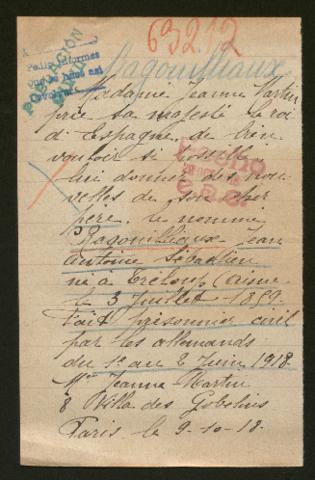 63212
POBLACIÓN
Ragouilliaux
Madame Jeanne Martin
prie sa majesté le roi
d'Espagne de bien
vouloir si possible
lui donner des nou-
velles de son cher
père. le nommé
Ragouilliaux Jean
Antoine Sébastien
né à Tréloup (Aisne
le 3 Juillet 1859.
Fait prisonnier civil
par les allemands
du 1er au 2 Juin 1918.
Mme Jeanne Martin
8 Villa des Gobelins
Paris le 9-10-18.